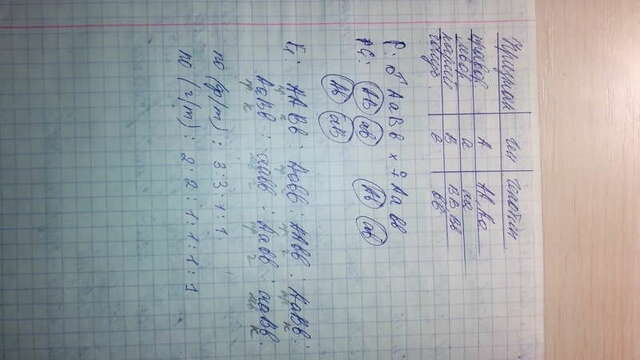 Признак ген генотип
правор A AA, Aa
левор a aa
карий B BB Bb
голуб. b bb
P: ♂ AaBb x ♀ Aabb
G: AB ab Ab ab
Ab aB
F₁: AABb : Aabb : AAbb : AaBb :
AaBb : aabb : Aabb : aaBb.
по (ф/т): 3:3:1:1
по (г/т): 2:2:1:1:1:1